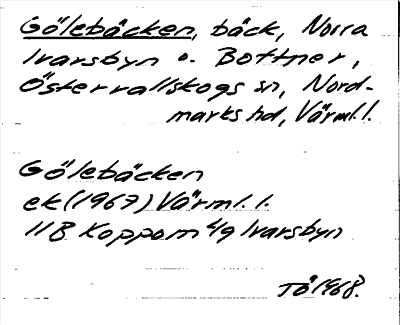 Gölebäcken, bäck, Norra
Ivarsbyn o. Bottner,
Östervallskogs sn, Nord-
marks hd, Värml.l.
Gölebäcken
ek (1967) Värml.l.
11B Koppom 4g Ivarsbyn
TÖ 1968.